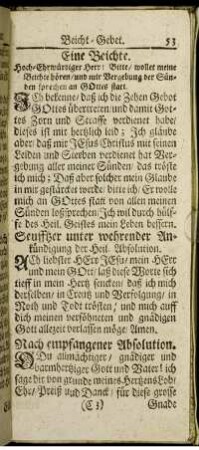 Beicht-Gebet. 53
Eine Beichte.
Hoch-Ehrwürdiger Herr! Bitte, wollet meine
Beichte hören, und mir Vergebung der Sün-
den sprechen an GOttes statt.
ICh bekenne, daß ich die Zehen Gebot
GOttes übertreten und damit Got-
tes Zorn und Straffe verdienet habe,
dieses ist mir hertzlich leid; Ich gläube
aber, daß mir JEsus Christus mit seinen
Leiden und Sterben verdienet hat Ver-
gebung aller meiner Sünden: das tröste
ich mich; Daß aber solcher mein Glaube
in mir gestärcket werde, bitte ich, Er wolle
mich an GOttes statt von allen meinen
Sünden loßsprechen, Ich wil durch hülf-
fe des Heil. Geistes mein Leben bessern.
Seuffzer unter wehrender An-
kündigung der Heil. Absolution.
ACh liebster HErr JEsu, mein HErr
und mein GOtt, laß diese Worte sich
tieff in mein Hertz sencken, daß ich mich
derselben, in Creutz und Verfolgung, in
Noth und Todt trösten, und mich auff
dich meinen versöhneten und gnädigen
Gott allezeit verlassen möge Amen.
Nach empfangener Absolution.
O Du allmächtiger, gnädiger und
barmhertziger Gott und Vater! ich
sage dir von grund meines Hertzens Lob,
Ehr, Preiß und Danck, für diese grosse
(C 3) Gnade